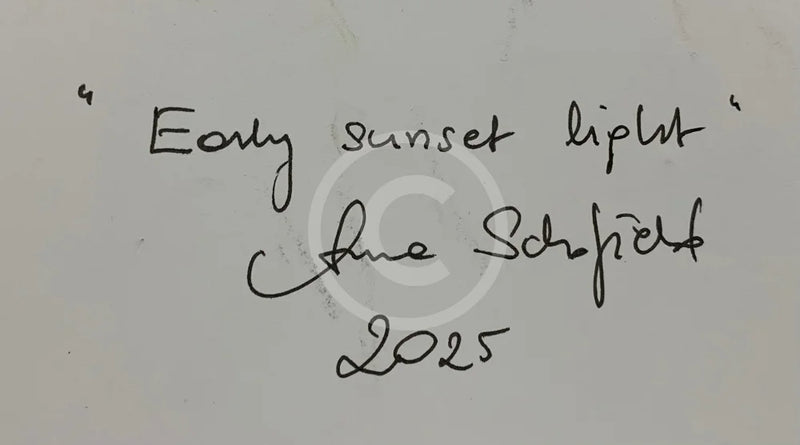 "Early sunset light"
Anne Schofield
2025